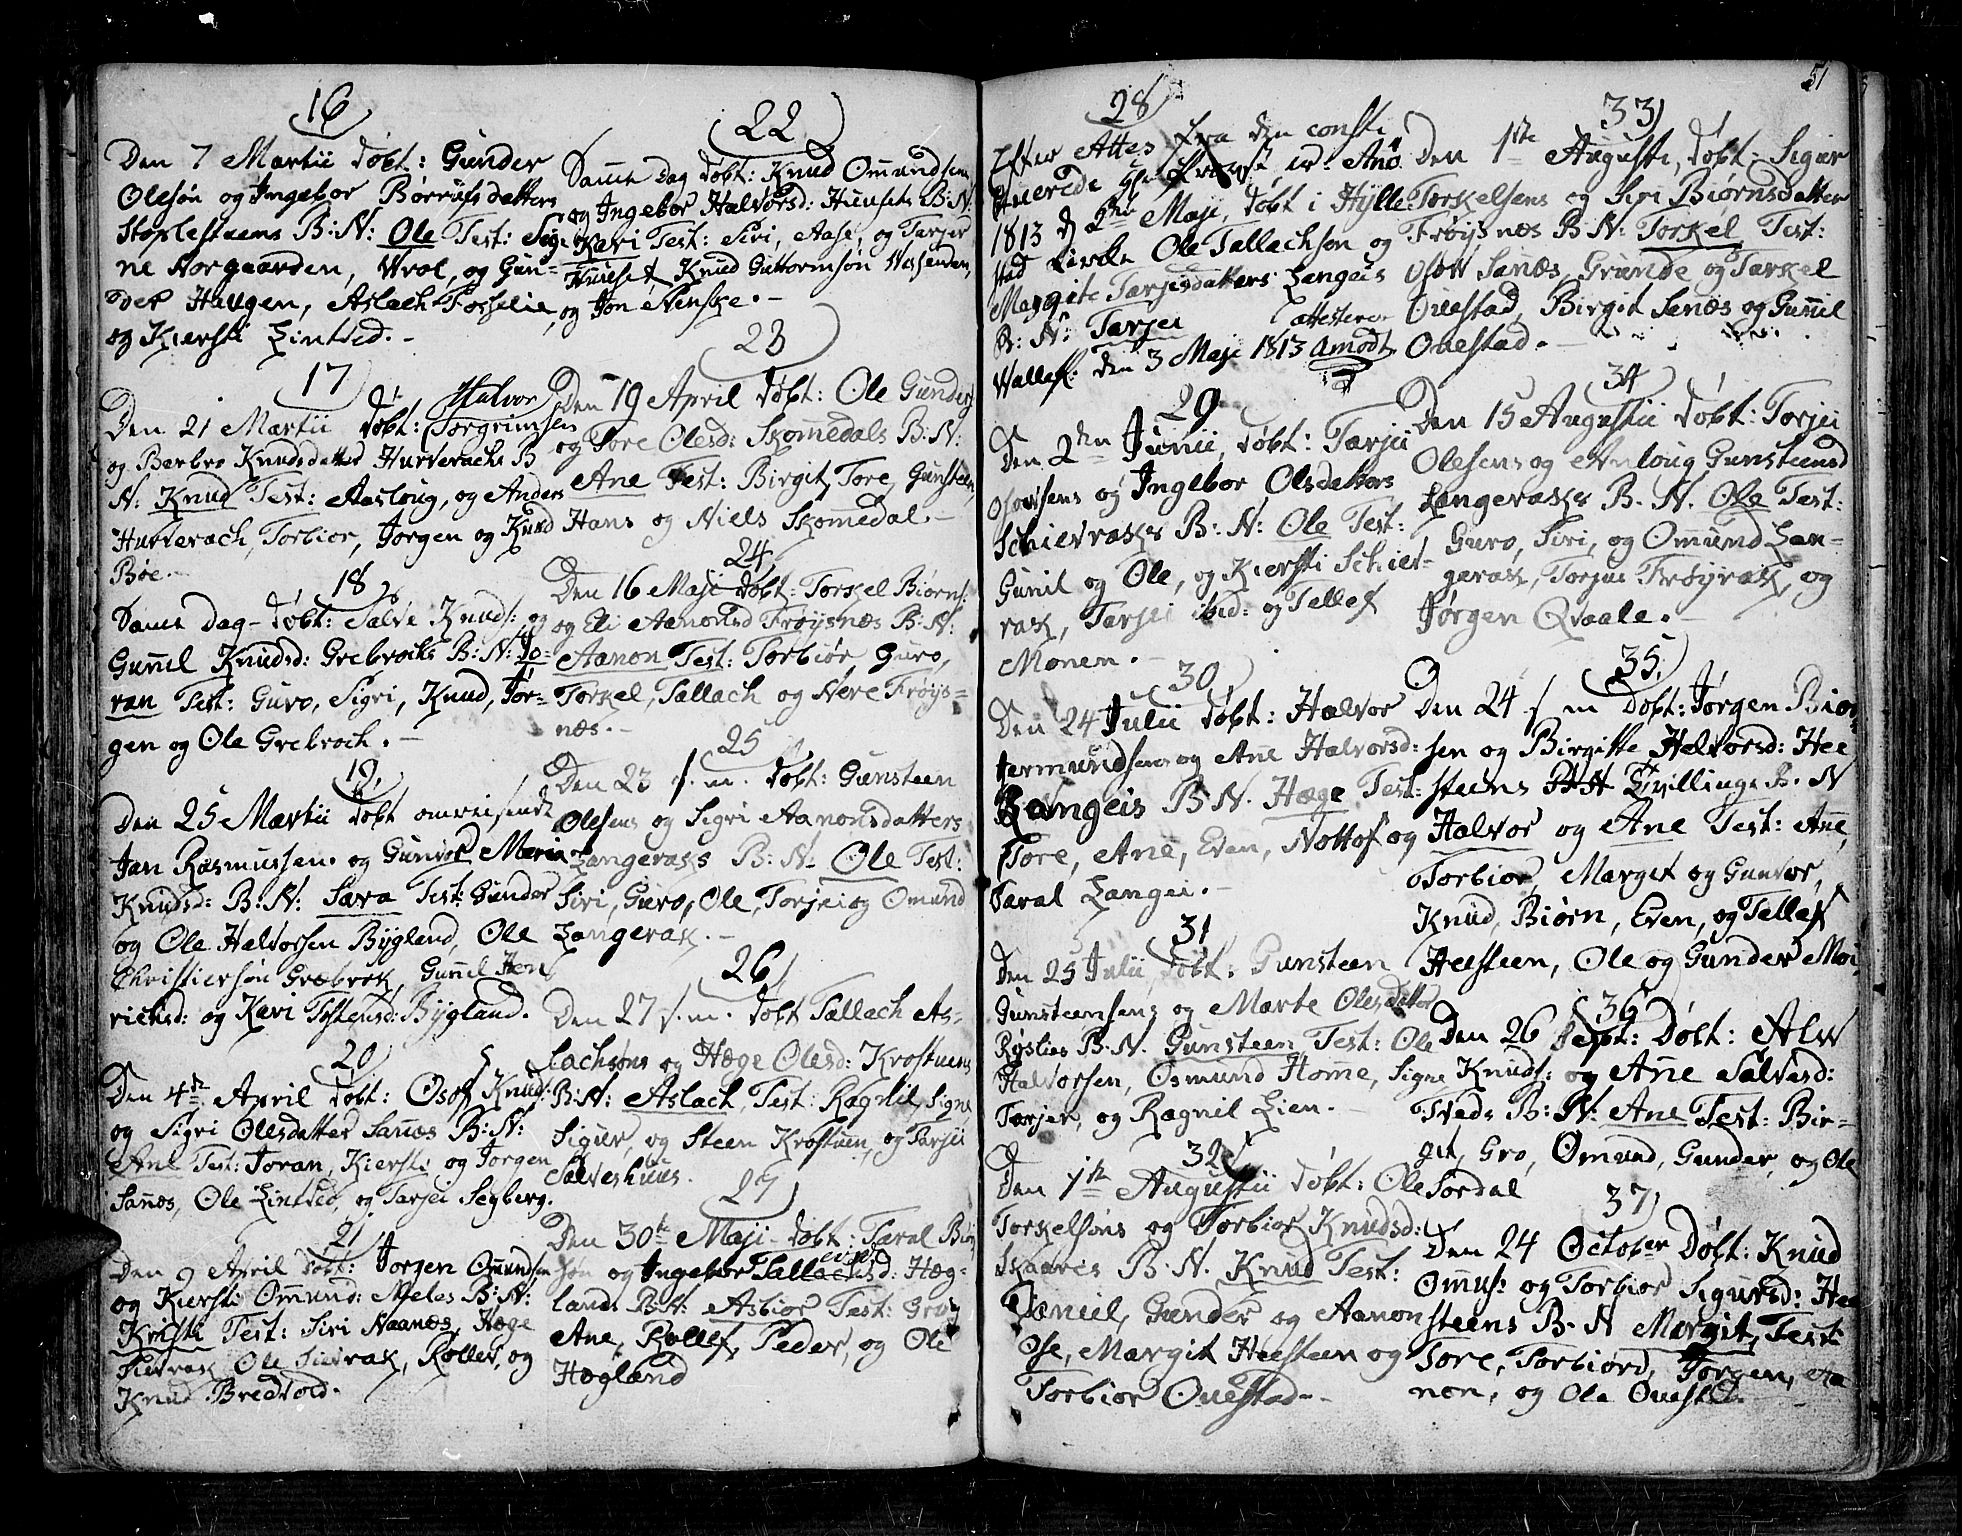 16
Den 7 Martii døbt: Gunder
Olesøn og Ingebor Børrufsdatters
Stoplestuens B: N: Ole Test: Sig-
ne Norgaarden, Wrol, og Gun-
der Haugen, Aslach Fosselie,
og Kiersti Lintved.-
17
Den 21 Martii døbt: Halvor Torgrimsens
og Berbro Knudsdatter Hurverachs B
N: Knud Test: Aasloug, og Anders
Hurverach, Torbior, Jorgen og Knud
Bøe.-
18
Same Dag døbt: Salve Knuds: og
Gunil Knudsd: Grebrochs B: N: Jo-
ran Test: Guro, Sigri, Knud, Jør-
gen og Ole Grebroch.-
19
Den 25 Martii døbt omreisende
Jan Rasmussen og Gunvor Maria
Knudsd: B: N: Sara Test: Gunder
og Ole Halvorsen Bygland, Ole
Christiersøn Grebrok, Gunil Hen-
richsd: og Kari Tostensd: Bygland.
20
Den 4de April døbt: Osof Knuds:
og Sigri Olesdatter Sanæs B: N:
Ane Test: Joran, Kiersti og Jorgen
Sanæs, Ole Lintved, og Tarjei Segberg.
21
Den 9 April døbt: Jorgen Omundsen
og Kiersti Omund: Meles B: N:
Kristi Test: Siri Naanæs, Hæge
Ole Rollev, og
Knud Bredvold.
22
Same Dag døbt: Knud Omundsens
og Ingebor Halvorsd: Hunsets B: N:
Kari Test: Siri, Aase, og Tarjer
Hunset, Knud Guttormsøn Wassenden,
og Jon Nenske.-
23
Den 19 April døbt: Ole Gunders:
og Tore Olesd: Skomedals B: N:
Ane Test: Birgit, Tore, Gunsteen,
Hans og Niels Skomedal.-
24
Den 16 Maji døbt: Torkel Biørns:
og Eli Aanonsd Frøysnæs B: N:
Aanon Test: Torbiør, Guro,
Torkel, Tallach og Nere Frøys-
næs.-
25
Den 23 s. m. døbt: Gunsteen
Olesens og Sigri Aanonsdatters
Langeraks B: N. Ole Test:
Siri, Guro, Ole, Torjei og Omund
Langerak.-
26
Den 27 s. m. døbt Tallach As-
lachsøns og Hæge Olesd: Krostuens
B: N: Aslach, Test: Ragnil, Signe
Sigur, og Steen Krostuen, og Tarjei
Salveshuus.
27
Den 30te Maji døbt: Taral Biør-
søn og Ingebor Tallachsd: Hæg-
lands B: N: Asbior Test: Gro,
Ane, Rollef, Peder, og Ole
Hægland
51
28
Efter Attest fra den consti
Præst, Hr. Ano
1813 d 2den Maji, døbt i Hylle-
stad Kirke Ole Tallachsøn og
Margite Tarjesdatters Langeis
B: N: Tarjei attesterer
Wallef. den 3 Maji 1813 Amodt
29
Den 2den Junii, døbt: Tarjei
Osovsens og Ingebor Olsdatters
Schievraks B: N: Ole Test:
Gunil og Ole, og Kiersti Schiev-
rak, Tarjei ibid: og Tellef
Monen.-
30
Den 24 Julii døbt: Halvor
Jermundsens og Ane Halvorsd:
Langeis B: N. Hæge Test:
Tore, Ane, Even, Nottof og
Taral Langei.-
31
Den 25 Julii, døbt: Gunsteen
Gunsteensens og Marte Olesdatter
Røslies B: N. Gunsteen Test: Ole
Halvorsen, Osmund Home, Signe
Tarjer, og Ragnil Lien.-
32
Den 1ste Augustii døbt: Ole
Torkelsøns og Torbior Knudsd:
Skaares B: N. Knud Test:
Daniel, Gunder og Aanon
Ose, Margit Heesteen og
Torbior Ouestad.-
33
Den 1ste Augusti, døbt: Sigur
Torkelsens og Siri Biørnsdatter
Frøysnæs B: N: Torkel Test:
Osow Sanæs, Grunde og Tarkel
Ouestad, Birgit Sanæs og Gunil
Ouestad.-
34
Den 15 Augustii døbt: Torjei
Olesens og Anloug Gunsteensd
Langeraks B. N. Ole Test:
Guro, Siri, og Omund Lan-
gerak, Torjus Frøyrak, og
Jørgen Qvaale.-
35
Den 24 s. m. døbt: Jørgen Biør-
sen og Birgitte Halvorsd: Hee-
steens Tvillinge B. N
Halvor og Ane Test: Ane,
Torbior, Marget og Gunvor,
Knud, Biørn, Even, og Tellef
Heesteen, Ole og Gunder Moi,
36
Den 26 Sept: døbt: Alw
Knuds: og Ane Salvesd:
Tveds B: N: Ane Test: Bir-
git, Gro, Omund, Gunder, og Ole
Sordal
37
Den 24 October døbt: Knud
Omus: og Torbior Sigursd: Hee
steens B. N Margit, Test:
Tore, Torbiørd, Jorgen, Aa
non, og Ole Ouest